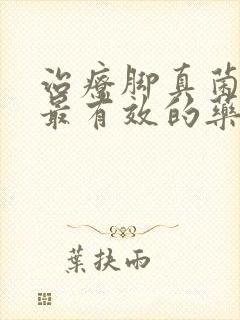 治療脚真菌
最有效的藥
葉扶雨